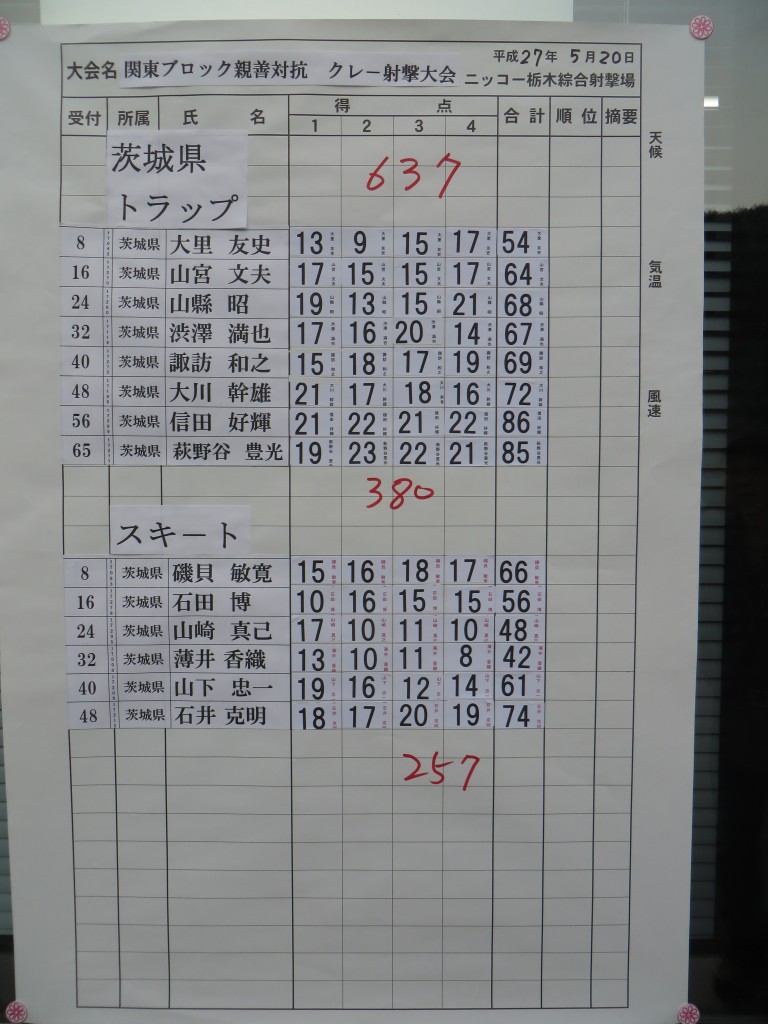 平成27年 5月20日
大会名 関東ブロック親善対抗 クレー射撃大会 ニッコー栃木綜合射撃場
受付 所属 氏名 得点 合計 順位 摘要
1 2 3 4
天候
気温
風速
茨城県 637
トラップ
8 茨城県 大里 友史 13 9 15 17 54
16 茨城県 山宮 文夫 17 15 15 17 64
24 茨城県 山縣 昭 19 13 15 21 68
32 茨城県 渋澤 満也 17 16 20 14 67
40 茨城県 諏訪 和之 15 18 17 19 69
48 茨城県 大川 幹雄 21 17 18 16 72
56 茨城県 信田 好輝 21 22 21 22 86
65 茨城県 萩野谷 豊光 19 23 22 21 85
380
スキート
8 茨城県 磯貝 敏寛 15 16 18 17 66
16 茨城県 石田 博 10 16 15 15 56
24 茨城県 山崎 真己 17 10 11 10 48
32 茨城県 薄井 香織 13 10 11 8 42
40 茨城県 山下 忠一 19 16 12 14 61
48 茨城県 石井 克明 18 17 20 19 74
257